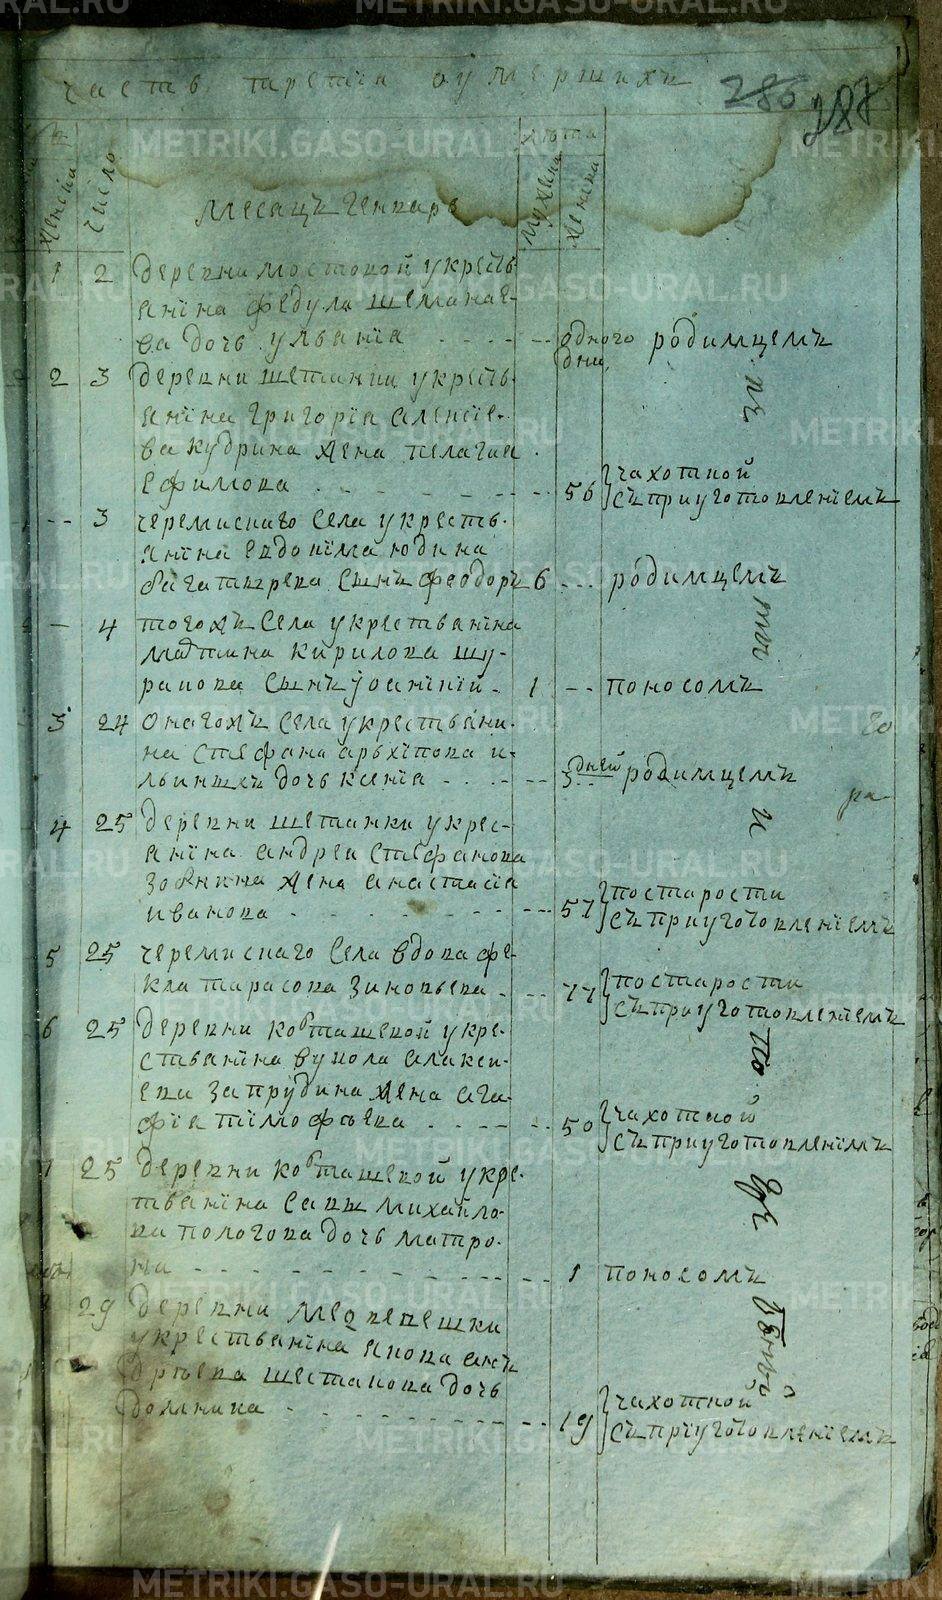 часть третїя оумершихъ
286
287
женска
число
лѣта
мужска
женска
месяцъ генварь
1 2 деревни мостовой у кресть
янина федула шеманае-
ва дочь уліанїа одного дни родимцемъ
2 3 деревни шетанки у кресть
янина григорїа алексїе-
ва кудрина жена пелагиа
ефимова 56 чахотной
съ приуготовленїемъ
-- 3 черемискаго села у кресть-
янина евдокїма юдина
багатырева сынъ феодоръ 6 родимцемъ
-- 4 тогожъ села у крестьянина
мартина кирилова шу-
ралова сынъ 1 поносомъ
3 24 онагожъ села у крестьяни-
на стефана архїпова и-
льиныхъ дочь ксенїа 3 дней родимцемъ
4 25 деревни шетанки у крес-
янина андреа стефанова
жена анастасїа
иванова 57 по старости
съ приуготовленїемъ
5 25 черемискаго села вдова фе-
кла тарасова зиновьева 77 по старости
съ приуготовленїемъ
6 25 деревни корташевой у кре-
стьянина вукола алакси-
ева запрудина жена ага-
фїа тїмофѣева 50 чахотной
съ приуготовленїемъ
7 25 деревни корташевой у кре-
тьянина савы михайло-
ва пологова дочь матро-
на 1 поносомъ
29 деревни медведешки
у крестьянина якова ан-
дрѣева шестакова дочь
домника 19 чахотной
съ приуготовленїемъ